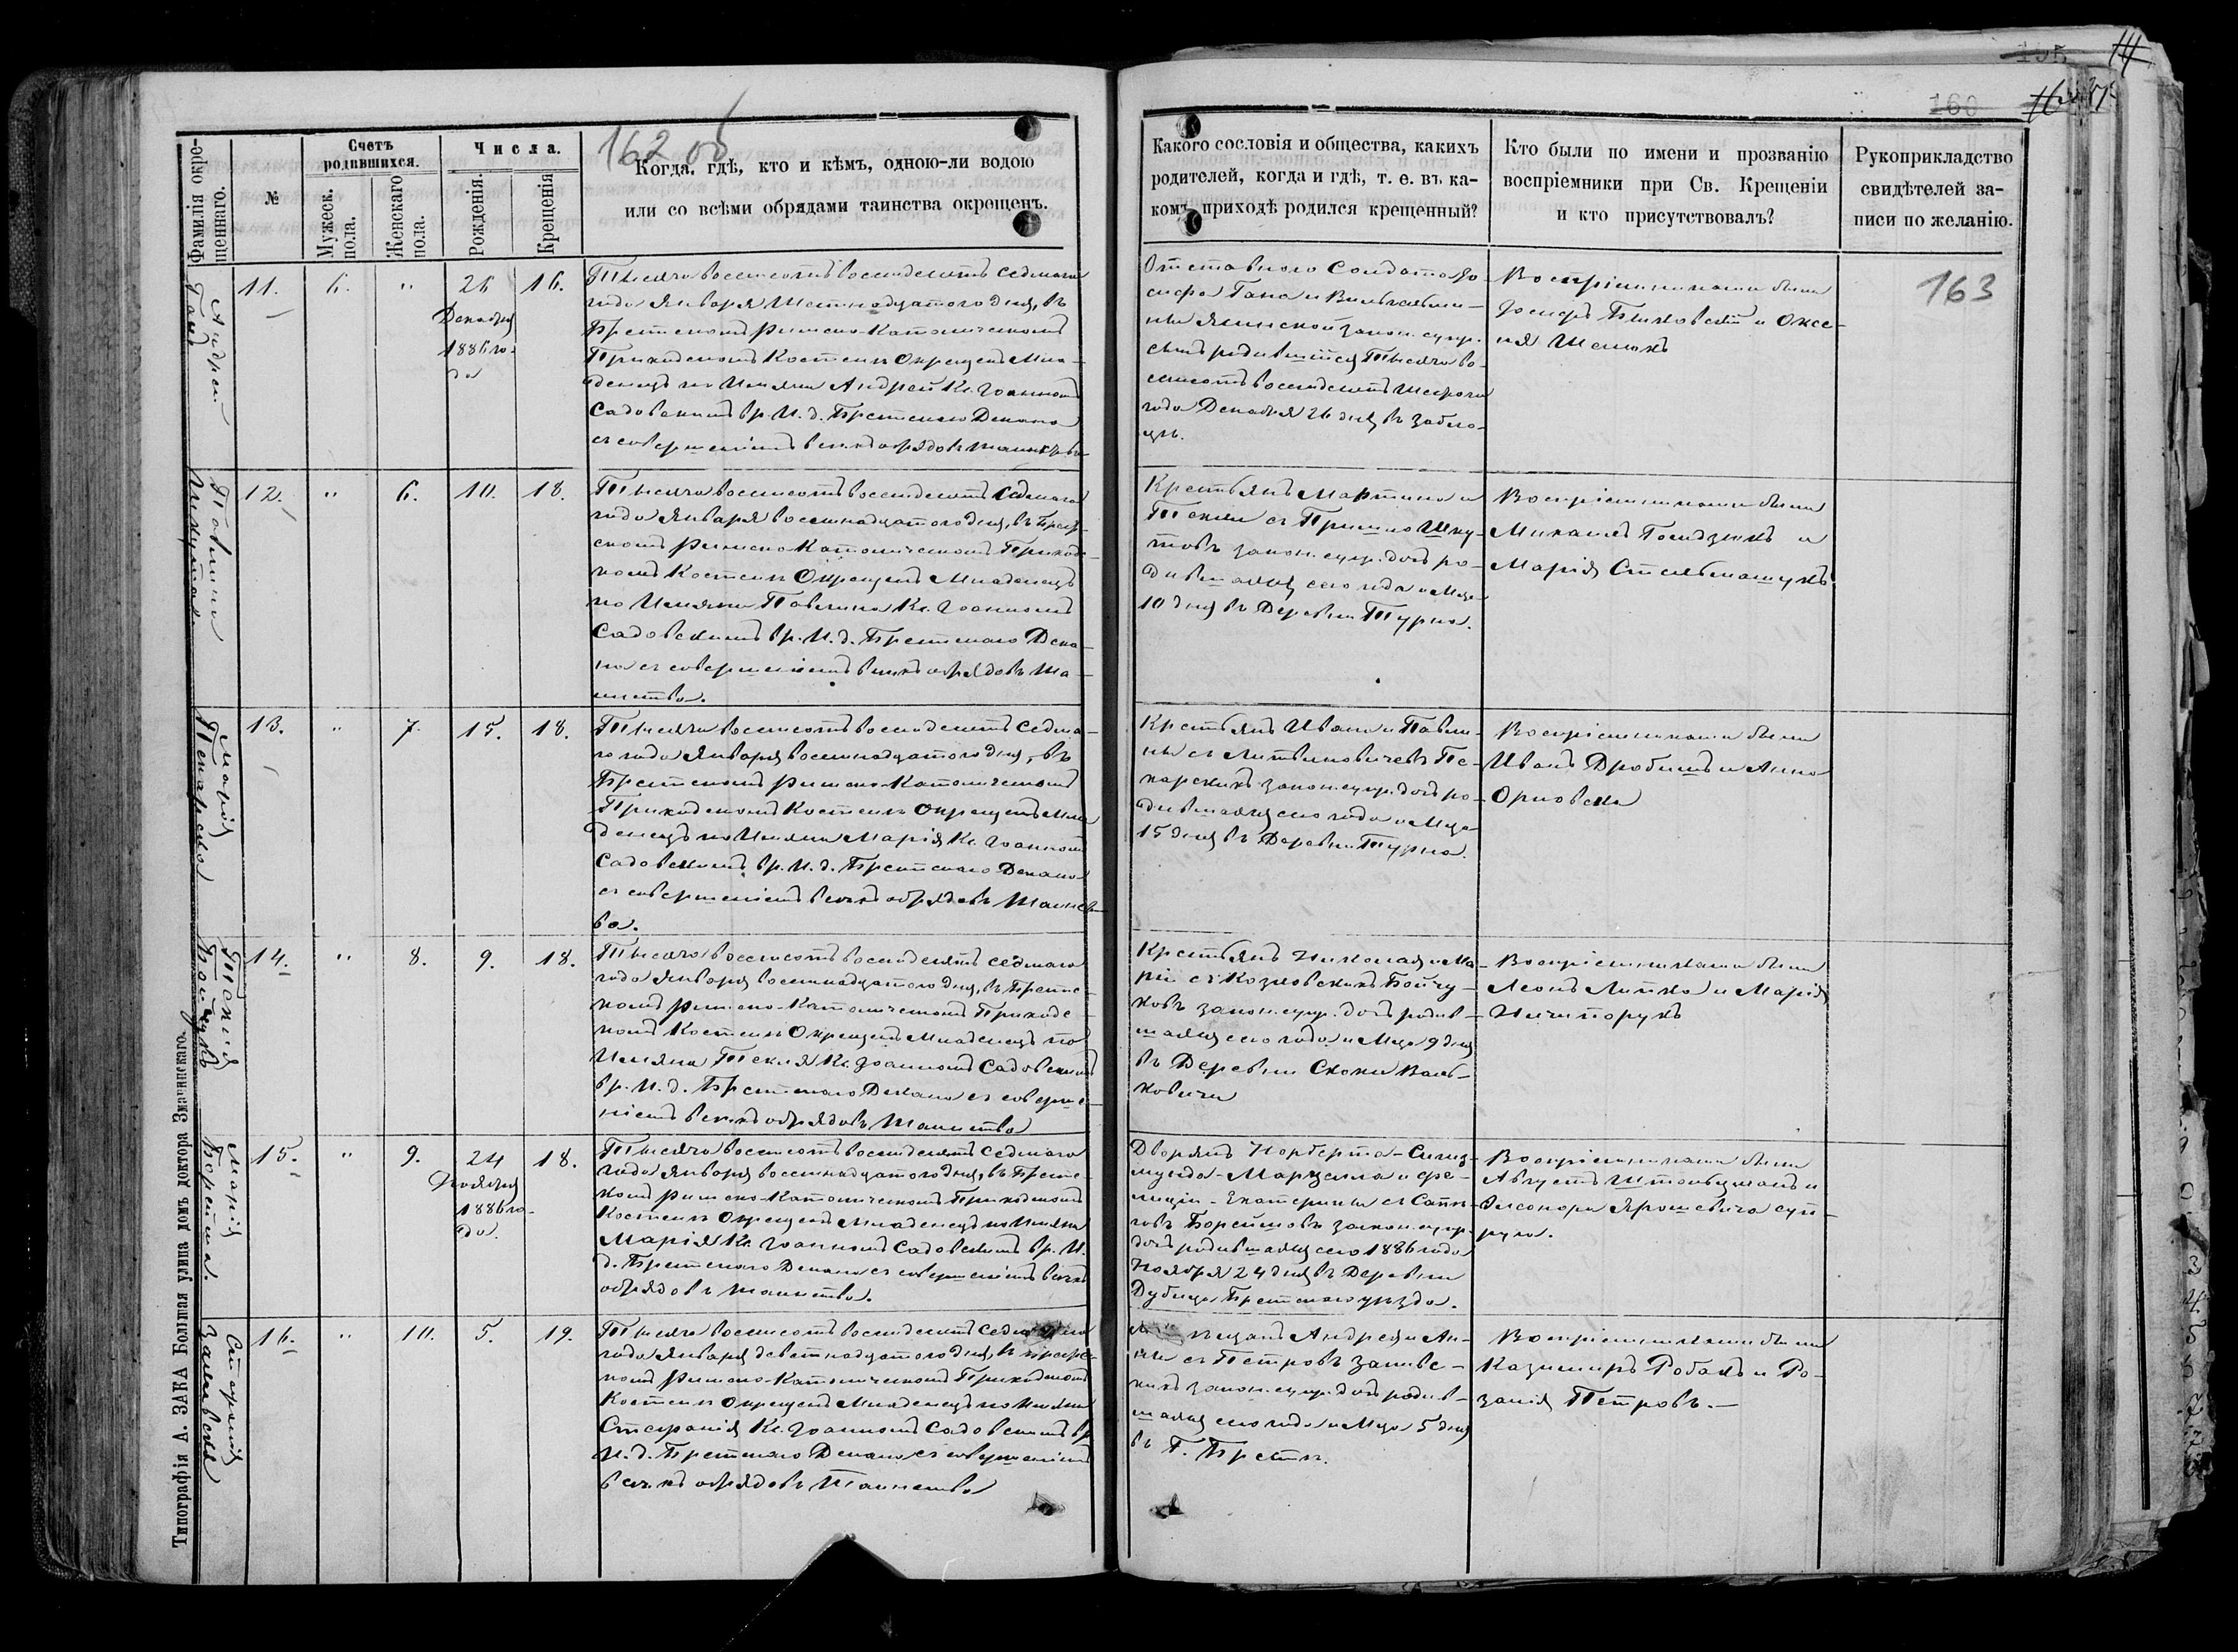 162 об
Фамилія окрещеннаго.
№
Счетъ родившихся.
Мужеск. пола.
Женскаго пола.
Числа.
Рожденія.
Крещенія
Когда, гдѣ, кто и кѣмъ, одною-ли водою
или со всѣми обрядами таинства окрощенъ.
Андрей
11.
6.
"
26
Декабря
1886 го-
да
16.
Тысяча восемсотъ восмдесятъ седмаго
года Января Шестнадцатого дня, въ
Брестскомъ Римско-Католическомъ
Приходскомъ Костелѣ Окрещенъ Мла-
денецъ по Имяни Андрей Кс. Іоанномъ
Садовскимъ вр. И. д. Брестскаго Декана
съ совершеніемъ всѣхъ обрядовъ таинства
Павлина
12.
"
6.
10.
18.
Тысяча восемсотъ восмдесятъ Седмаго
года Января восемнадцатого дня, въ Брест-
скомъ Римско-Католическомъ Приход-
скомъ Костелѣ Окрещенъ Младенецъ
по Имяни Павлина Кс. Іоанномъ
Садовскимъ вр. И. д. Брестскаго Дека-
на съ совершеніемъ всѣхъ обрядовъ Та-
инства.
Марія
Пекарска
13.
"
7.
15.
18.
Тысяча восемсотъ восмдесятъ Седма-
го года Января восемнадцатого дня, въ
Брестскомъ Римско-Католическомъ
Приходскомъ Костелѣ Окрещенъ Мла
денецъ по Имяни Марія Кс. Іоанномъ
Садовскимъ вр. И. д. Брестскаго Декана
съ совершеніемъ всѣхъ обрядовъ Таинст-
ва.
Текля
Бойчукъ
14.
"
8.
9.
18.
Тысяча восемсотъ восмдесятъ седмаго
года Января восемнадцатого дня, въ Брест-
скомъ Римско-Католическомъ Приходс-
комъ Костелѣ Окрещенъ Младенецъ по
Имяни Текля Кс. Іоанномъ Садовскимъ
вр. И. д. Брестскаго Декана съ соверше-
ніемъ всѣхъ обрядовъ Таинства
Марія
Борейша.
15.
"
9.
24
Ноября
1886 го-
да.
18.
Тысяча восемсотъ восмдесятъ Седмаго
года Января восемнадцатого дня, въ Брестс-
комъ Римско-Католическомъ Приходскомъ
Костелѣ Окрещенъ Младенецъ по Имяни
Марія Кс. Іоанномъ Садовскимъ вр. И.
д. Брестскаго Декана съ совершеніемъ всѣхъ
обрядовъ таинства.
Стефанія
16.
"
10.
5.
19.
Тысяча восемсотъ восмдесятъ Седмаго
года Января девятнадцатого дня, въ Брестс-
комъ Римско-Католическомъ Приходскомъ
Костелѣ Окрещенъ Младенецъ по Имяни
Стефанія Кс. Іоанномъ Садовскимъ вр.
И. д. Брестскаго Декана съ совершеніемъ
всѣхъ обрядовъ Таинства
Типографія А. ЗАКА Болшая улица домъ доктора Знаминскаго.
160
Какого сословія и общества, какихъ
родителей, когда и гдѣ, т. е. въ ка-
комъ приходѣ родился крещенный?
Кто были по имени и прозванію
воспріемники при Св. Крещеніи
и кто присутствовалъ?
Рукоприкладство
свидѣтелей за-
писи по желанію.
163
Отставного Солдата Іо-
сифа Гана и
закон. супр.
сынъ родившійся Тысяча во-
семсотъ восмдесятъ Шестого
года Декабря 26 дня въ
Воспріемниками были
Іосифъ и Оксе-
ня
Крестьянъ Мартина и
Текли съ
законн. супр. дочь ро-
дившаяся сего года и Мца
10 дня въ Деревни Турна.
Воспріемниками были
Михаилъ и
Марія Стельмашукъ
Крестьянъ Ивана и Павли-
ны съ Литвиновичевъ Пе-
карскихъ закон. супр. дочь ро-
дившаяся сего года и Мца
15 дня въ Деревни Турна.
Воспріемниками были
Иванъ Дробышъ и Анна
Орловска
Крестьянъ Николая и Ма-
ріи съ Козловскихъ Бойчу-
ковъ закон. супр. дочь родив-
шаяся сего года и Мца 9 дня
въ Деревни Скоки Валь-
ковичи
Воспріемниками были
Леонъ Липка и Марія
Ничипорукъ
Дворянъ Норберта-Сигиз-
мунда-Марцела и Фе-
лиціи-Екатерины съ
Борейшовъ закон. супр.
дочь родившаяся сего 1886 года
Ноября 24 дня въ Деревни
Дубица Брестскаго уѣзда.
Воспріемниками были
Августъ и
Элеонора Ярошевича суп-
руга.
Мѣщанъ Андрея и Ан-
ны съ Петровъ
закон. супр. дочь родив-
шаяся сего года и Мца 5 дня
въ Г. Брестѣ.
Воспріемниками были
Казимиръ Робакъ и Ро-
залія Петровъ.